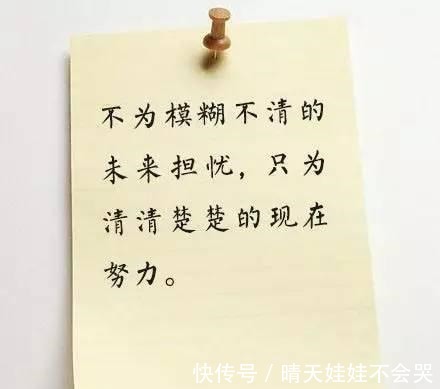 不为模糊不清的
未来担忧，只为
清清楚楚的现在
努力。
快传号/晴天娃娃不会哭